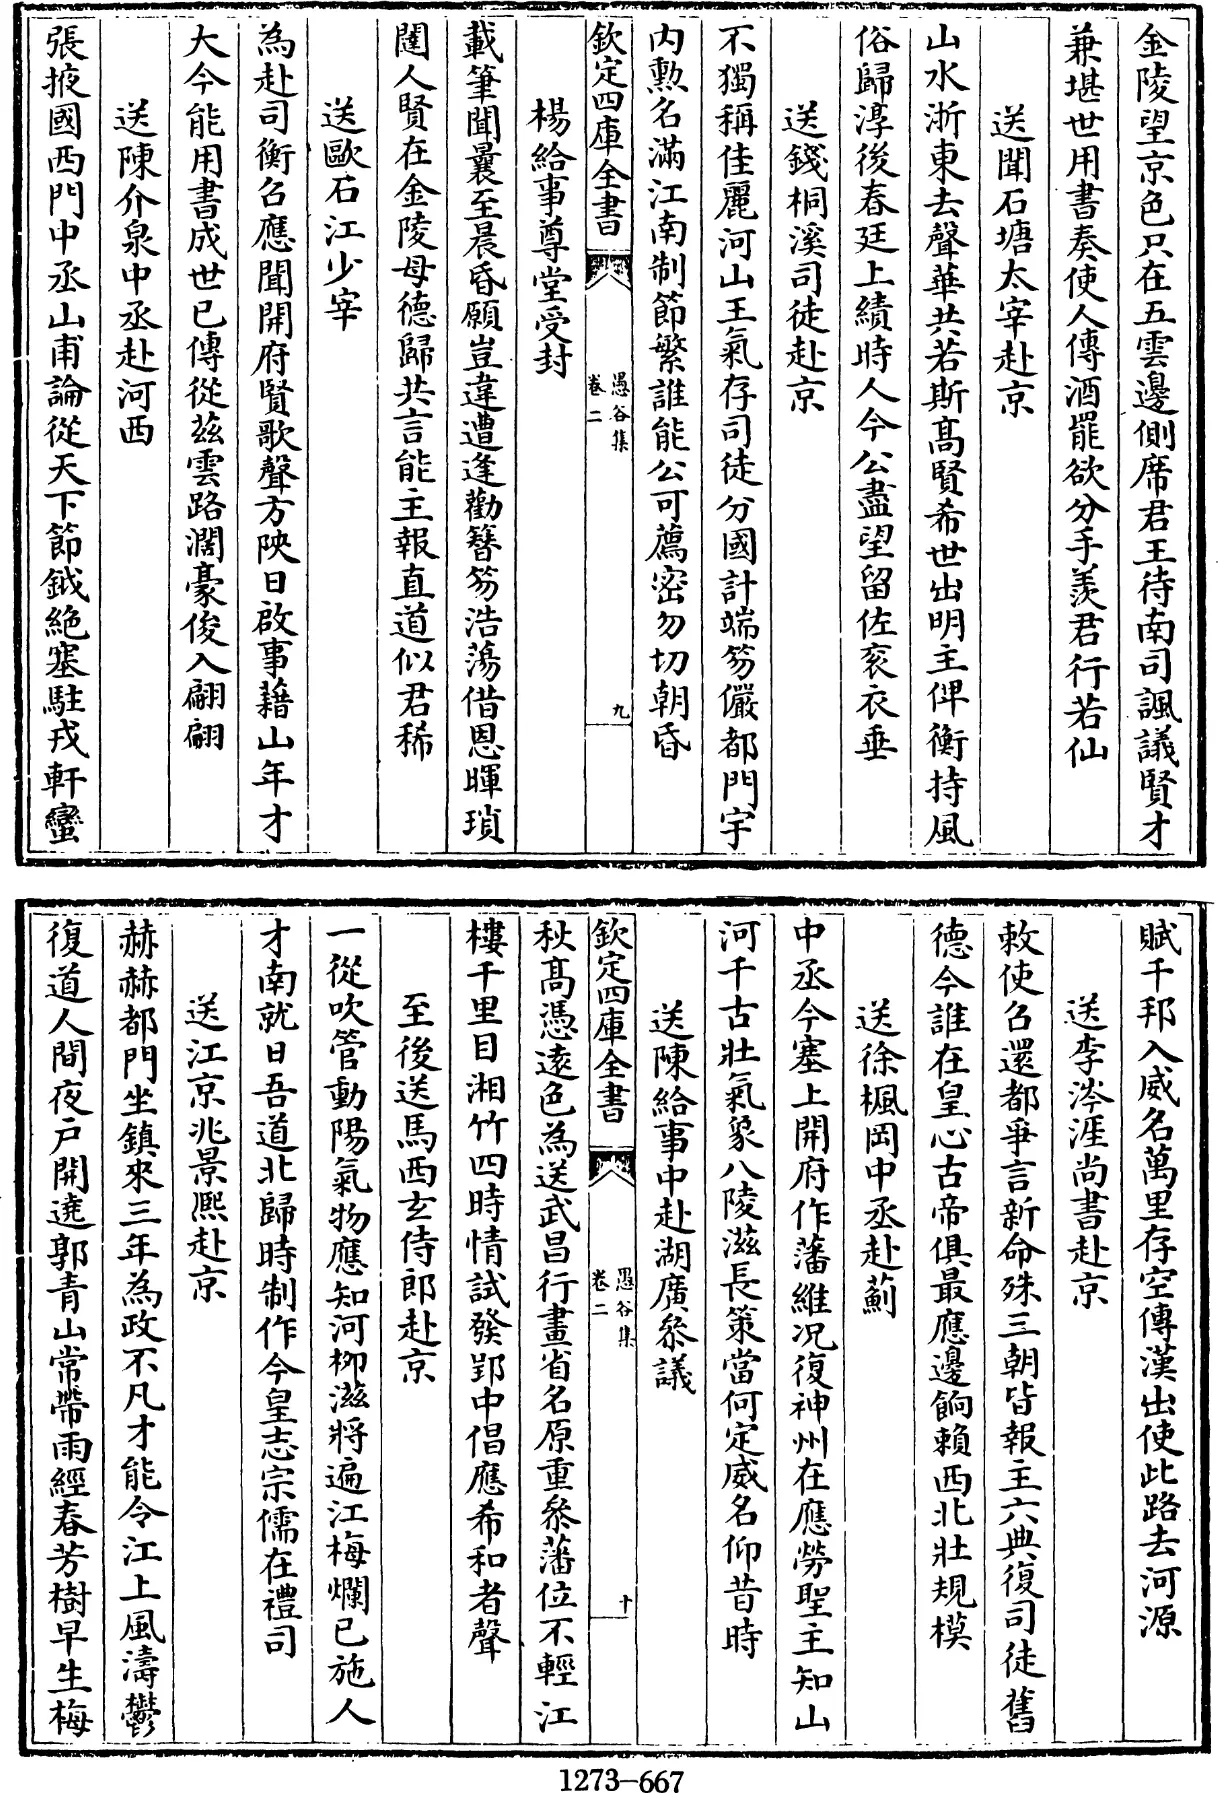 金陵望京色只在五雲邊側席君王待南司諷議賢才
兼堪世用書奏使人傳酒罷欲分手羨君行若仙
送聞石塘太宰赴京
山水浙東去聲華共若斯髙賢希世出明主俾衡持風
俗歸淳後春廷上績時人今公盡望留佐衮衣垂
送錢桐溪司徒赴京
不獨稱佳麗河山王氣存司徒分國計端笏儼都門宇
内勲名滿江南制節繁誰能公可薦密勿切朝昏
欽定四庫全書
愚谷集
卷二
九
楊給事尊堂受封
載筆聞曩至晨昏願豈違遭逢勸簪笏浩蕩借恩暉瑣
闥人賢在金陵母德歸共言能主報直道似君稀
送歐石江少宰
為赴司衡召應聞開府賢歌聲方陜日啟事藉山年才
大今能用書成世已傳從兹雲路濶豪俊入翩翩
送陳介泉中丞赴河西
張掖國西門中丞山甫論從天下節鉞絶塞駐戎軒蠻
賦千邦入威名萬里存空傳漢出使此路去河源
送李涔涯尚書赴京
敕使召還都爭言新命殊三朝皆報主六典復司徒舊
德今誰在皇心古帝俱最應邊餉賴西北壯規模
送徐楓岡中丞赴薊
中丞今塞上開府作藩維况復神州在應勞聖主知山
河千古壯氣象八陵滋長策當何定威名仰昔時
送陳給事中赴湖廣叅議
欽定四庫全書
愚谷集
卷二
十
秋髙憑逺色為送武昌行畫省名原重叅藩位不輕江
樓千里目湘竹四時情試發郢中倡應希和者聲
至後送馬西玄侍郎赴京
一從吹管動陽氣物應知河柳滋將遍江梅爛已施人
才南就日吾道北歸時制作今皇志宗儒在禮司
送江京兆景熙赴京
赫赫都門坐鎮來三年為政不凡才能令江上風濤鬱
復道人間夜戸開遶郭青山常帶雨經春芳樹早生梅
1273-667